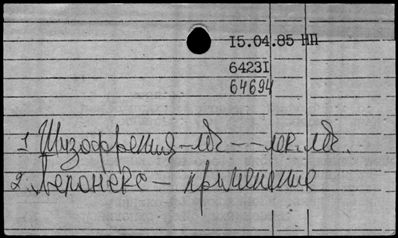 15.04.85 НП
64231
64694
1 Шизофрения - леч - - лек. леч.
2. Лепонекс - применение